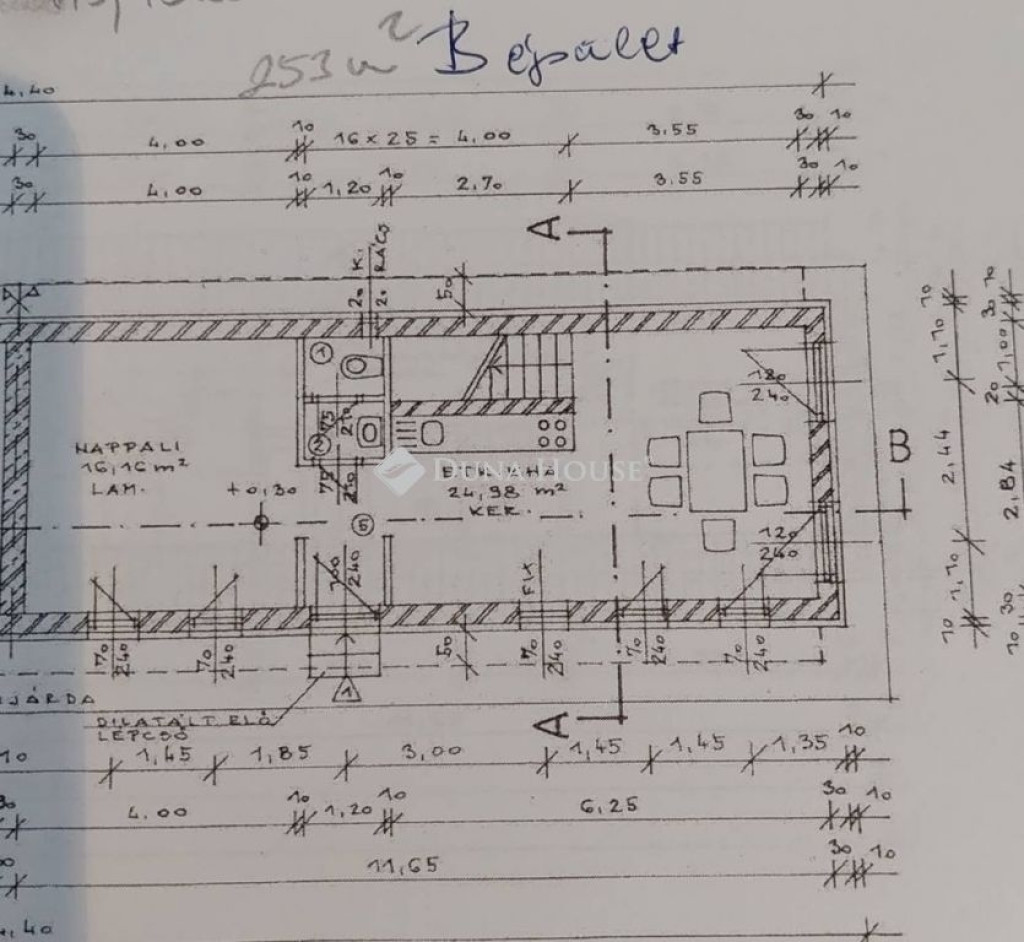 253 m² B épület
4,40
30 4,00 10 16 x 25 = 4,00 3,55 30 10
30 4,00 10 1,20 10 2,70 3,55 30 10
A
K.
RÁCS
20 20
50
1
180
240
75
210
2
NAPPALI
16,16 m²
LAM.
+0,30
75
210
DUNA HOUSE
24,98 m²
KER.
5
B
120
240
100
240
FIX
70
240
70
240
50
70
240
70
240
70
240
JÁRDA
1
DILATÁLT ELŐ
LÉPCSŐ
A
10 1,45 1,85 3,00 1,45 1,45 1,35 10
30 4,00 10 1,20 10 6,25 30 10
11,65 30 10
10 1,10 2,44 1,10 10
10 30 2,84 20 1,00 30 10